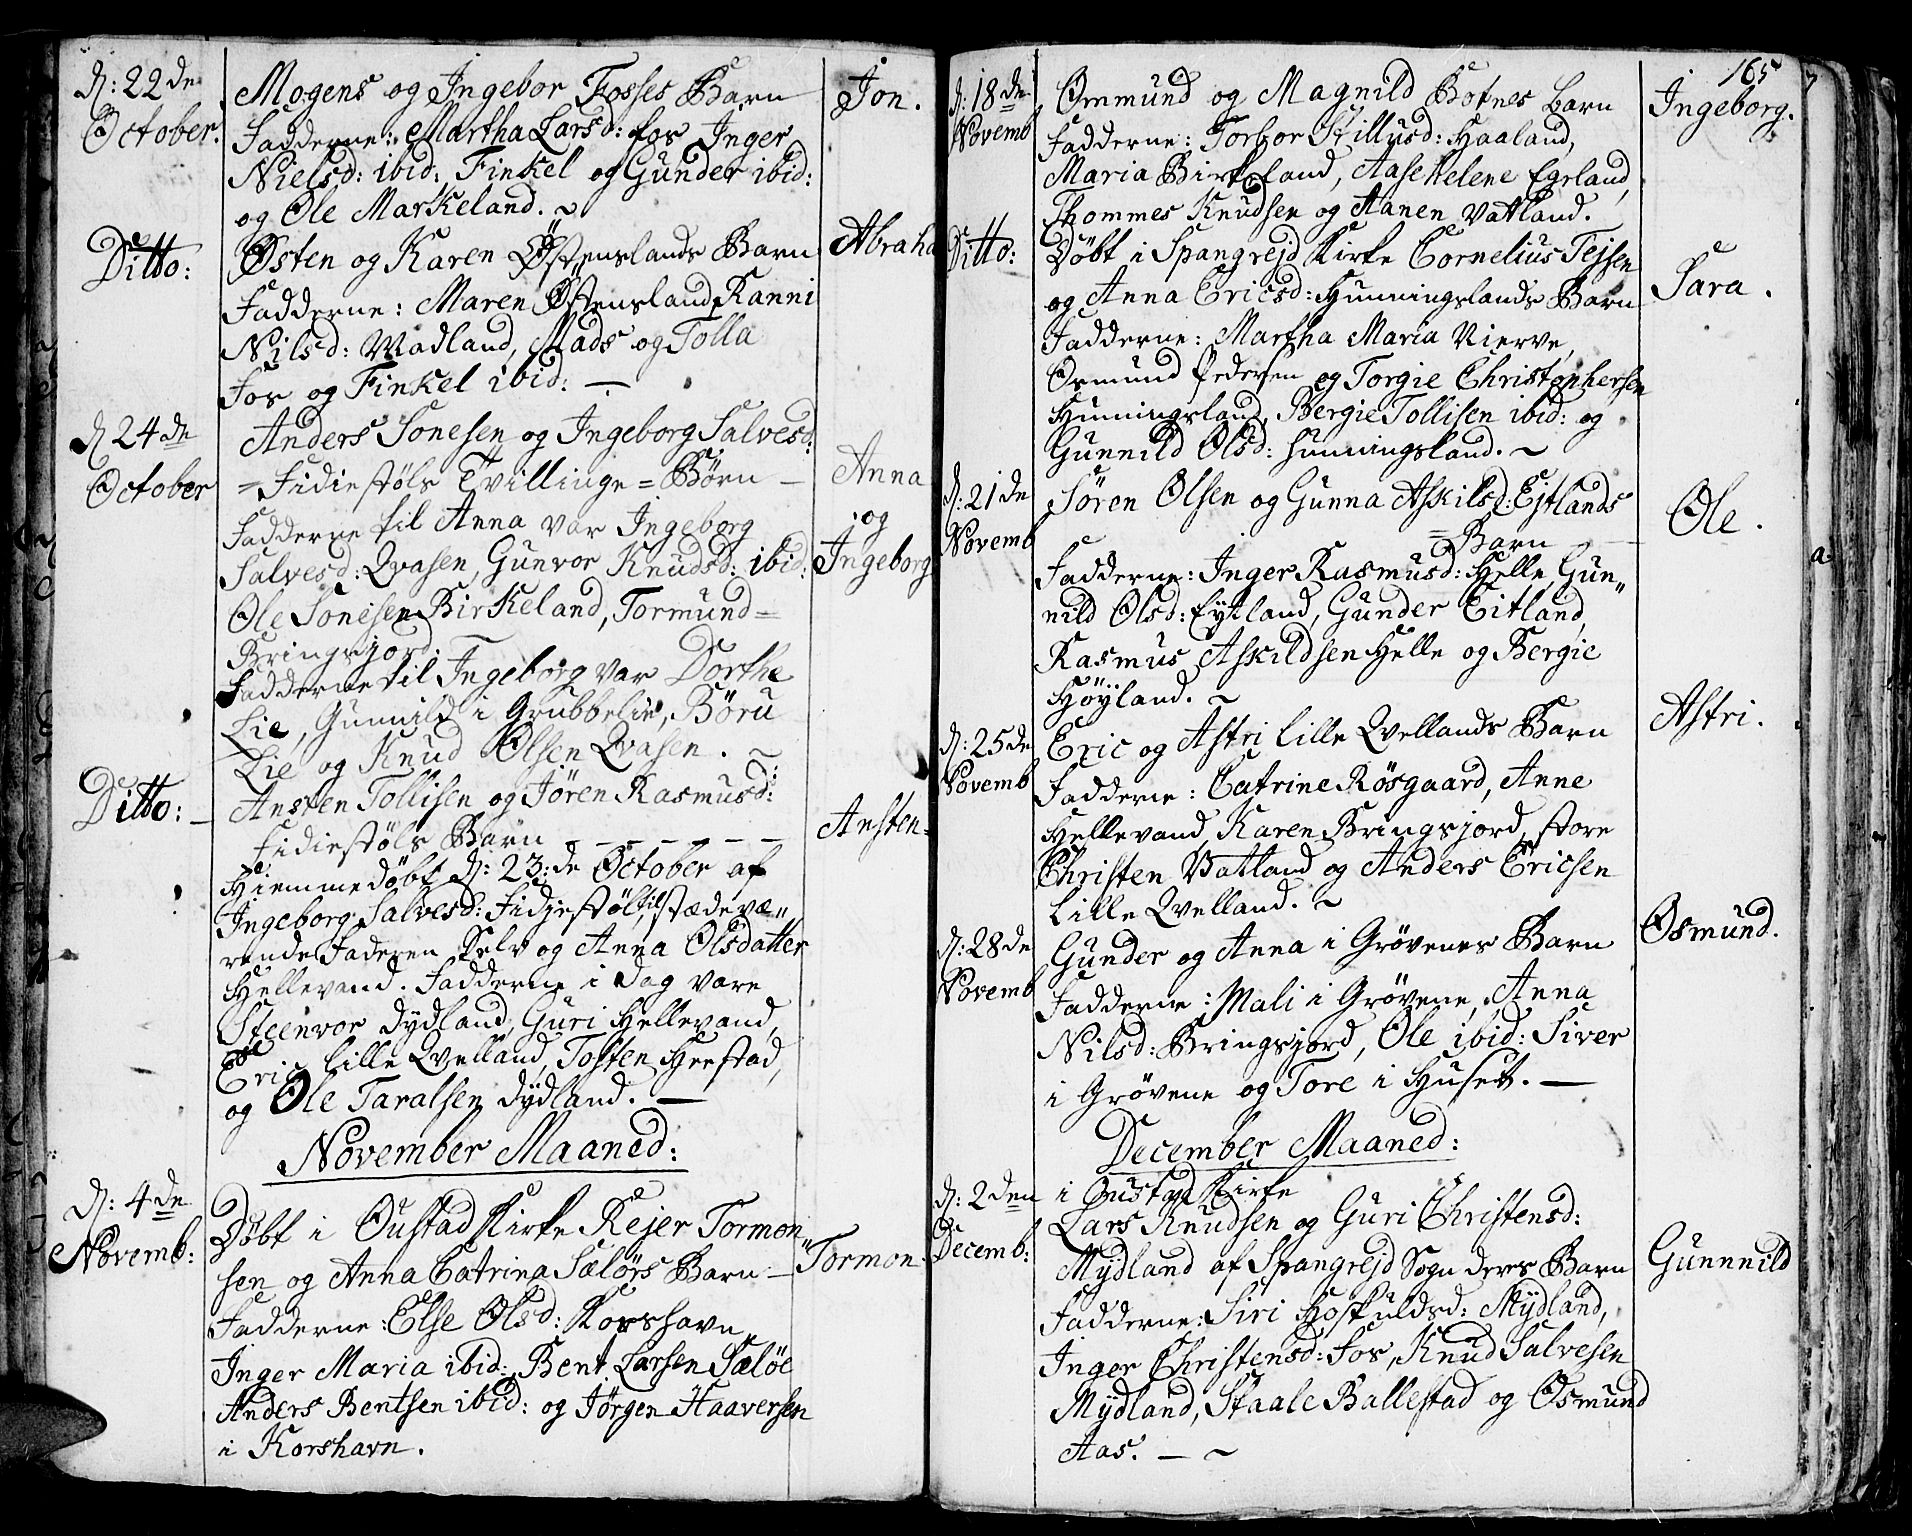 d: 22de October. Mogens og Ingebor Fosses Barn Jon.
Fadderne: Martha Larsd: Fos Inger
Nielsd: ibid: Finkel og Gunder ibid:
og Ole Markeland. ~
Ditto: Østen og Karen Østenslands Barn Abraha
Fadderne: Maren Østensland, Ranni
Nilsd: Wadland, Mads og Tolla
Fos og Finkel ibid: —
d 24de October Anders Sonesen og Ingeborg Salvesd:
=Fidiestøls Tvillinge=Børn — Anna
Fadderne til Anna var Ingeborg og
Salvesd: Qvasen, Gunvor Knudsd: ibid: Ingeborg
Ole Sonesen Birkeland, Tormund=
Bringsjord.
Fadderne til Ingeborg var Dorthe
Lie, Gunnild i Grubbelie, Böru
Lie og Knud Olsen Qvasen. ~
Ditto: — Ansten Tollisen og Jören Rasmusd:
Fidiestøls Barn — — — — — Ansten=
Hiemmedöbt d: 23:de October af
Ingeborg Salvesd: Fidjestöl, til stædevæ"
rende Faderen Selv og Anna Olsdatter
Hellevand. Fadderne i Dag vare
Steenvor Dydland, Guri Hellevand,
Eric Lille Qvelland, Tosten Heestad,
og Ole Taralsen Dydland. —
November Maaned:
d: 4de Novemb: Döbt i Oustad Kirke Rejer Tormon"
sen og Anna Catrina Sælörs Barn — Tormon
Fadderne: Else Olsd: Korshavn,
Inger Maria ibid:, Bent Larsen Sælöe
Anders Bentsen ibid: og Jörgen Haaversen
i Korshavn.
165
d: 18de Novemb Ommund og Magnild Botnes Barn Ingeborg.
Fadderne: Torbor Stillusd: Haaland,
Maria Birkeland, Aase Helene Egeland,
Thommes Knudsen og Aanen Vatland.
Ditto: Döbt i Spangrejd Kirke Cornelius Tejsen
og Anna Ericsd: Hunningslands Barn Sara.
Fadderne: Martha Maria Nierve,
Osmund Pedersen og Torgie Christophersen
Hunningsland, Bergie Tollisen ibid: og
Gunnild Olsd: Hunningsland. ~
d: 21de Novemb Sören Olsen og Gunna Askilsd: Ejtlands
=Barn — Ole.
Fadderne: Inger Rasmusd: Helle, Gun"
nild Olsd: Eytland, Gunder Eitland,
Rasmus Askildsen Helle og Bergie
Höyland. ~
d: 25de Novemb Eric og Astri Lille Qvellands Barn Astri.
Fadderne: Catrine Rösgaard, Anne
Hellevand, Karen Bringsjord, store
Christen Vatland og Anders Ericsen
Lille Qvelland. ~
d: 28de Novemb Gunder og Anna i Grövenes Barn Osmund.
Fadderne: Mali i Grövene, Anna
Nilsd: Bringsjord, Ole ibid: Siver
i Grövene og Tore i Huset. —
December Maaned:
d: 2den Decemb: i Oustad Kirke
Lars Knudsen og Guri Christensd:
Mydland af Spangrejd Sogn deres Barn Gunnnild
Fadderne: Siri Hoskuldsd: Mydland,
Inger Christensd: Fos, Knud Salvesen
Mydland, Staale Ballestad og Osmund
Aas. — ~